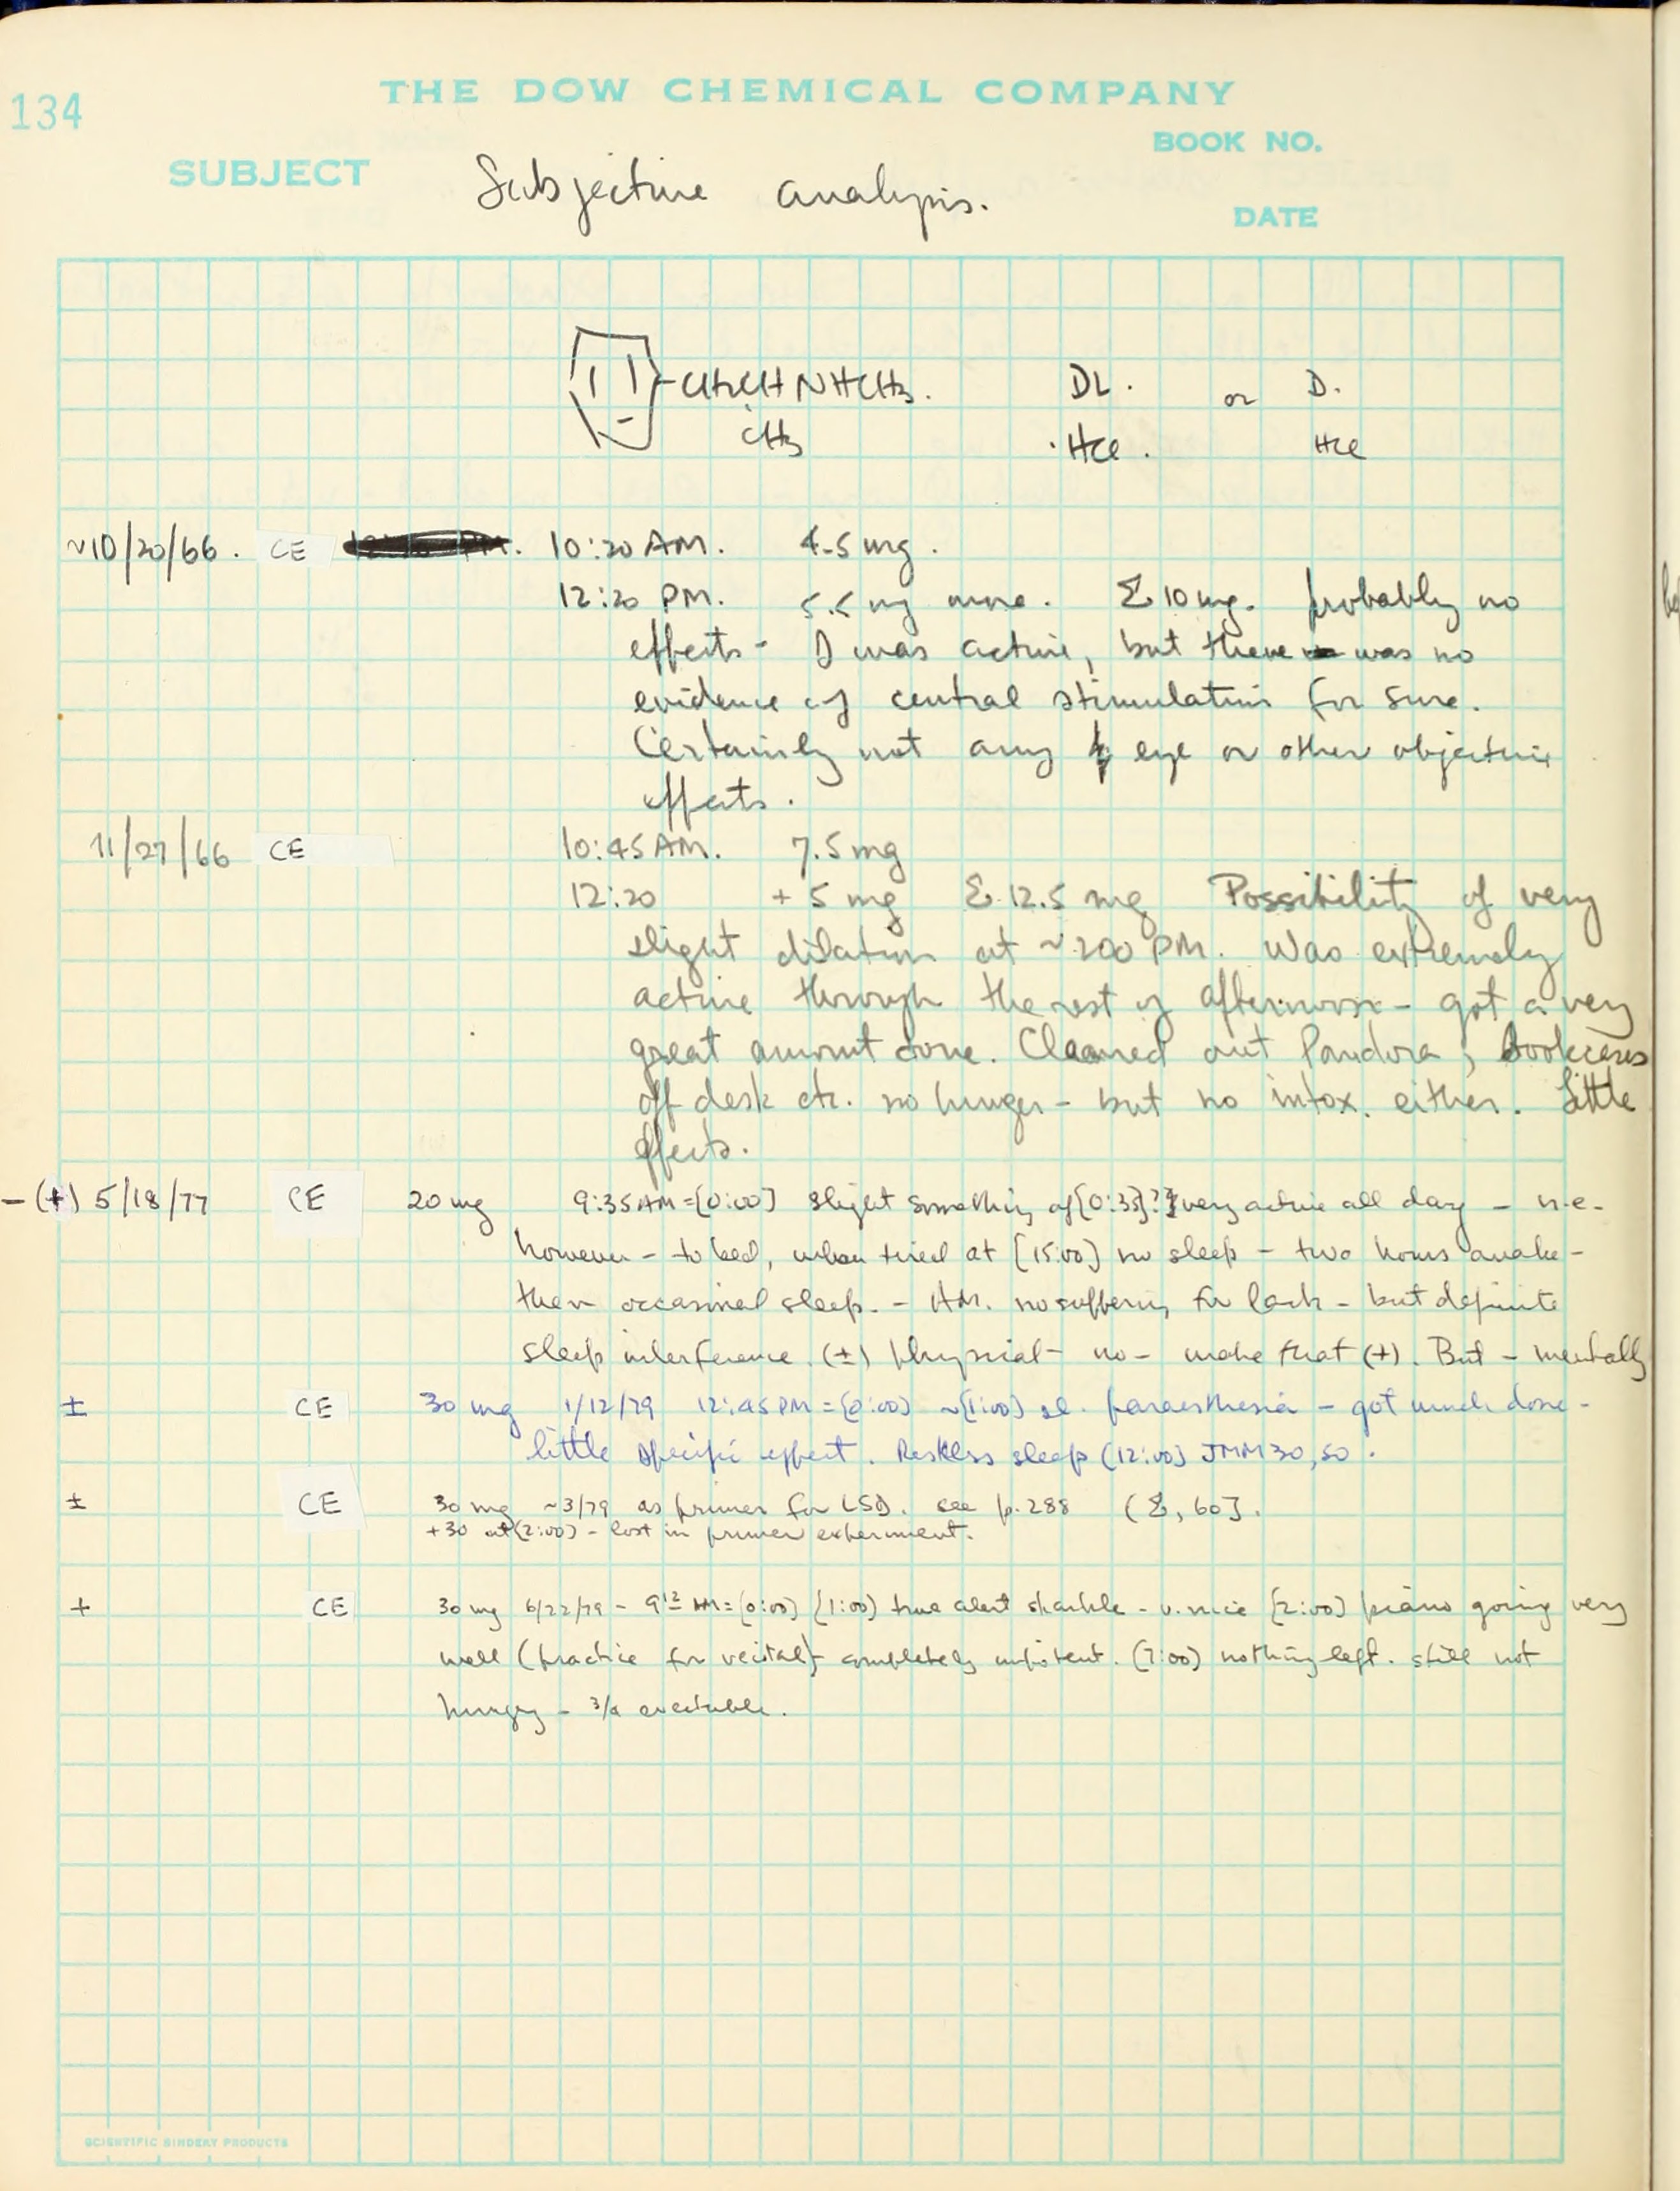 134
THE DOW CHEMICAL COMPANY
BOOK NO.
SUBJECT Subjective analysis.
DATE
-CH2CHNHCH3. DL. or D.
CH3 ·HCl. HCl
~10/20/66. CE 10:20 AM. 4.5 mg.
12:20 PM. 5.5 mg more. Σ 10 mg. probably no
effects - I was active, but there was no
evidence of central stimulation for sure.
Certainly not any eye or other objective
effects.
11/27/66 CE 10:45 AM. 7.5 mg
12:20 + 5 mg Σ 12.5 mg Possibility of very
slight dilation at ~200 PM. Was extremely
active through the rest of afternoon - got a very
great amount done. Cleaned out Pandora, bookcases
off desk etc. no hunger - but no intox. either. Little
effects.
-(+) 5/18/77 CE 20 mg 9:35 AM = [0:00] slight something at [0:35]?? very active all day - n.e.
however - to bed, when tired at [15:00] no sleep - two hours awake -
then occasional sleep. - AM. no suffering for lack - but definite
sleep interference. (±) physical - no - make that (+). But - mentally
± CE 30 mg 1/12/79 12:45 PM = [0:00] ~[1:00] sl. paraesthesia - got much done -
little specific effect. Restless sleep [12:00] JMM 30, 50.
± CE 30 mg ~3/79 as primer for LSD. see p. 288 (Σ, 60].
+30 at [2:00] - lost in primer experiment.
+ CE 30 mg 6/22/79 - 9 12 AM = [0:00] [1:00] true alert sparkle - v. nice [2:00] piano going very
well (practice for recital) - completely impotent. [7:00] nothing left. still not
hungry - 3/4
SCIENTIFIC BINDERY PRODUCTS